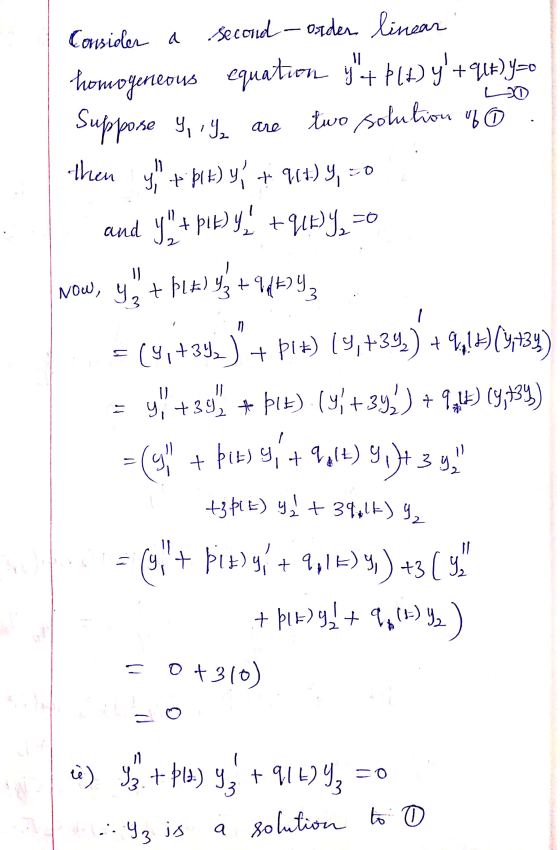 Consider a second-order linear
homogeneous equation y'' + p(t) y' + q(t) y=0
↳①
Suppose y₁, y₂ are two solution of ①.
then y₁'' + p(t) y₁' + q(t) y₁ = 0
and y₂'' + p(t) y₂' + q(t) y₂ = 0
Now, y₃'' + p(t) y₃' + q(t) y₃
= (y₁+3y₂)'' + p(t) (y₁+3y₂)' + q(t)(y₁+3y₂)
= y₁'' + 3y₂'' + p(t) (y₁' + 3y₂') + q(t) (y₁+3y₂)
= (y₁'' + p(t) y₁' + q(t) y₁) + 3 y₂''
+3p(t) y₂' + 3q(t) y₂
= (y₁'' + p(t) y₁' + q(t) y₁) +3 ( y₂''
+ p(t) y₂' + q(t) y₂ )
= 0 + 3(0)
= 0
ie) y₃'' + p(t) y₃' + q(t) y₃ = 0
∴ y₃ is a solution to ①